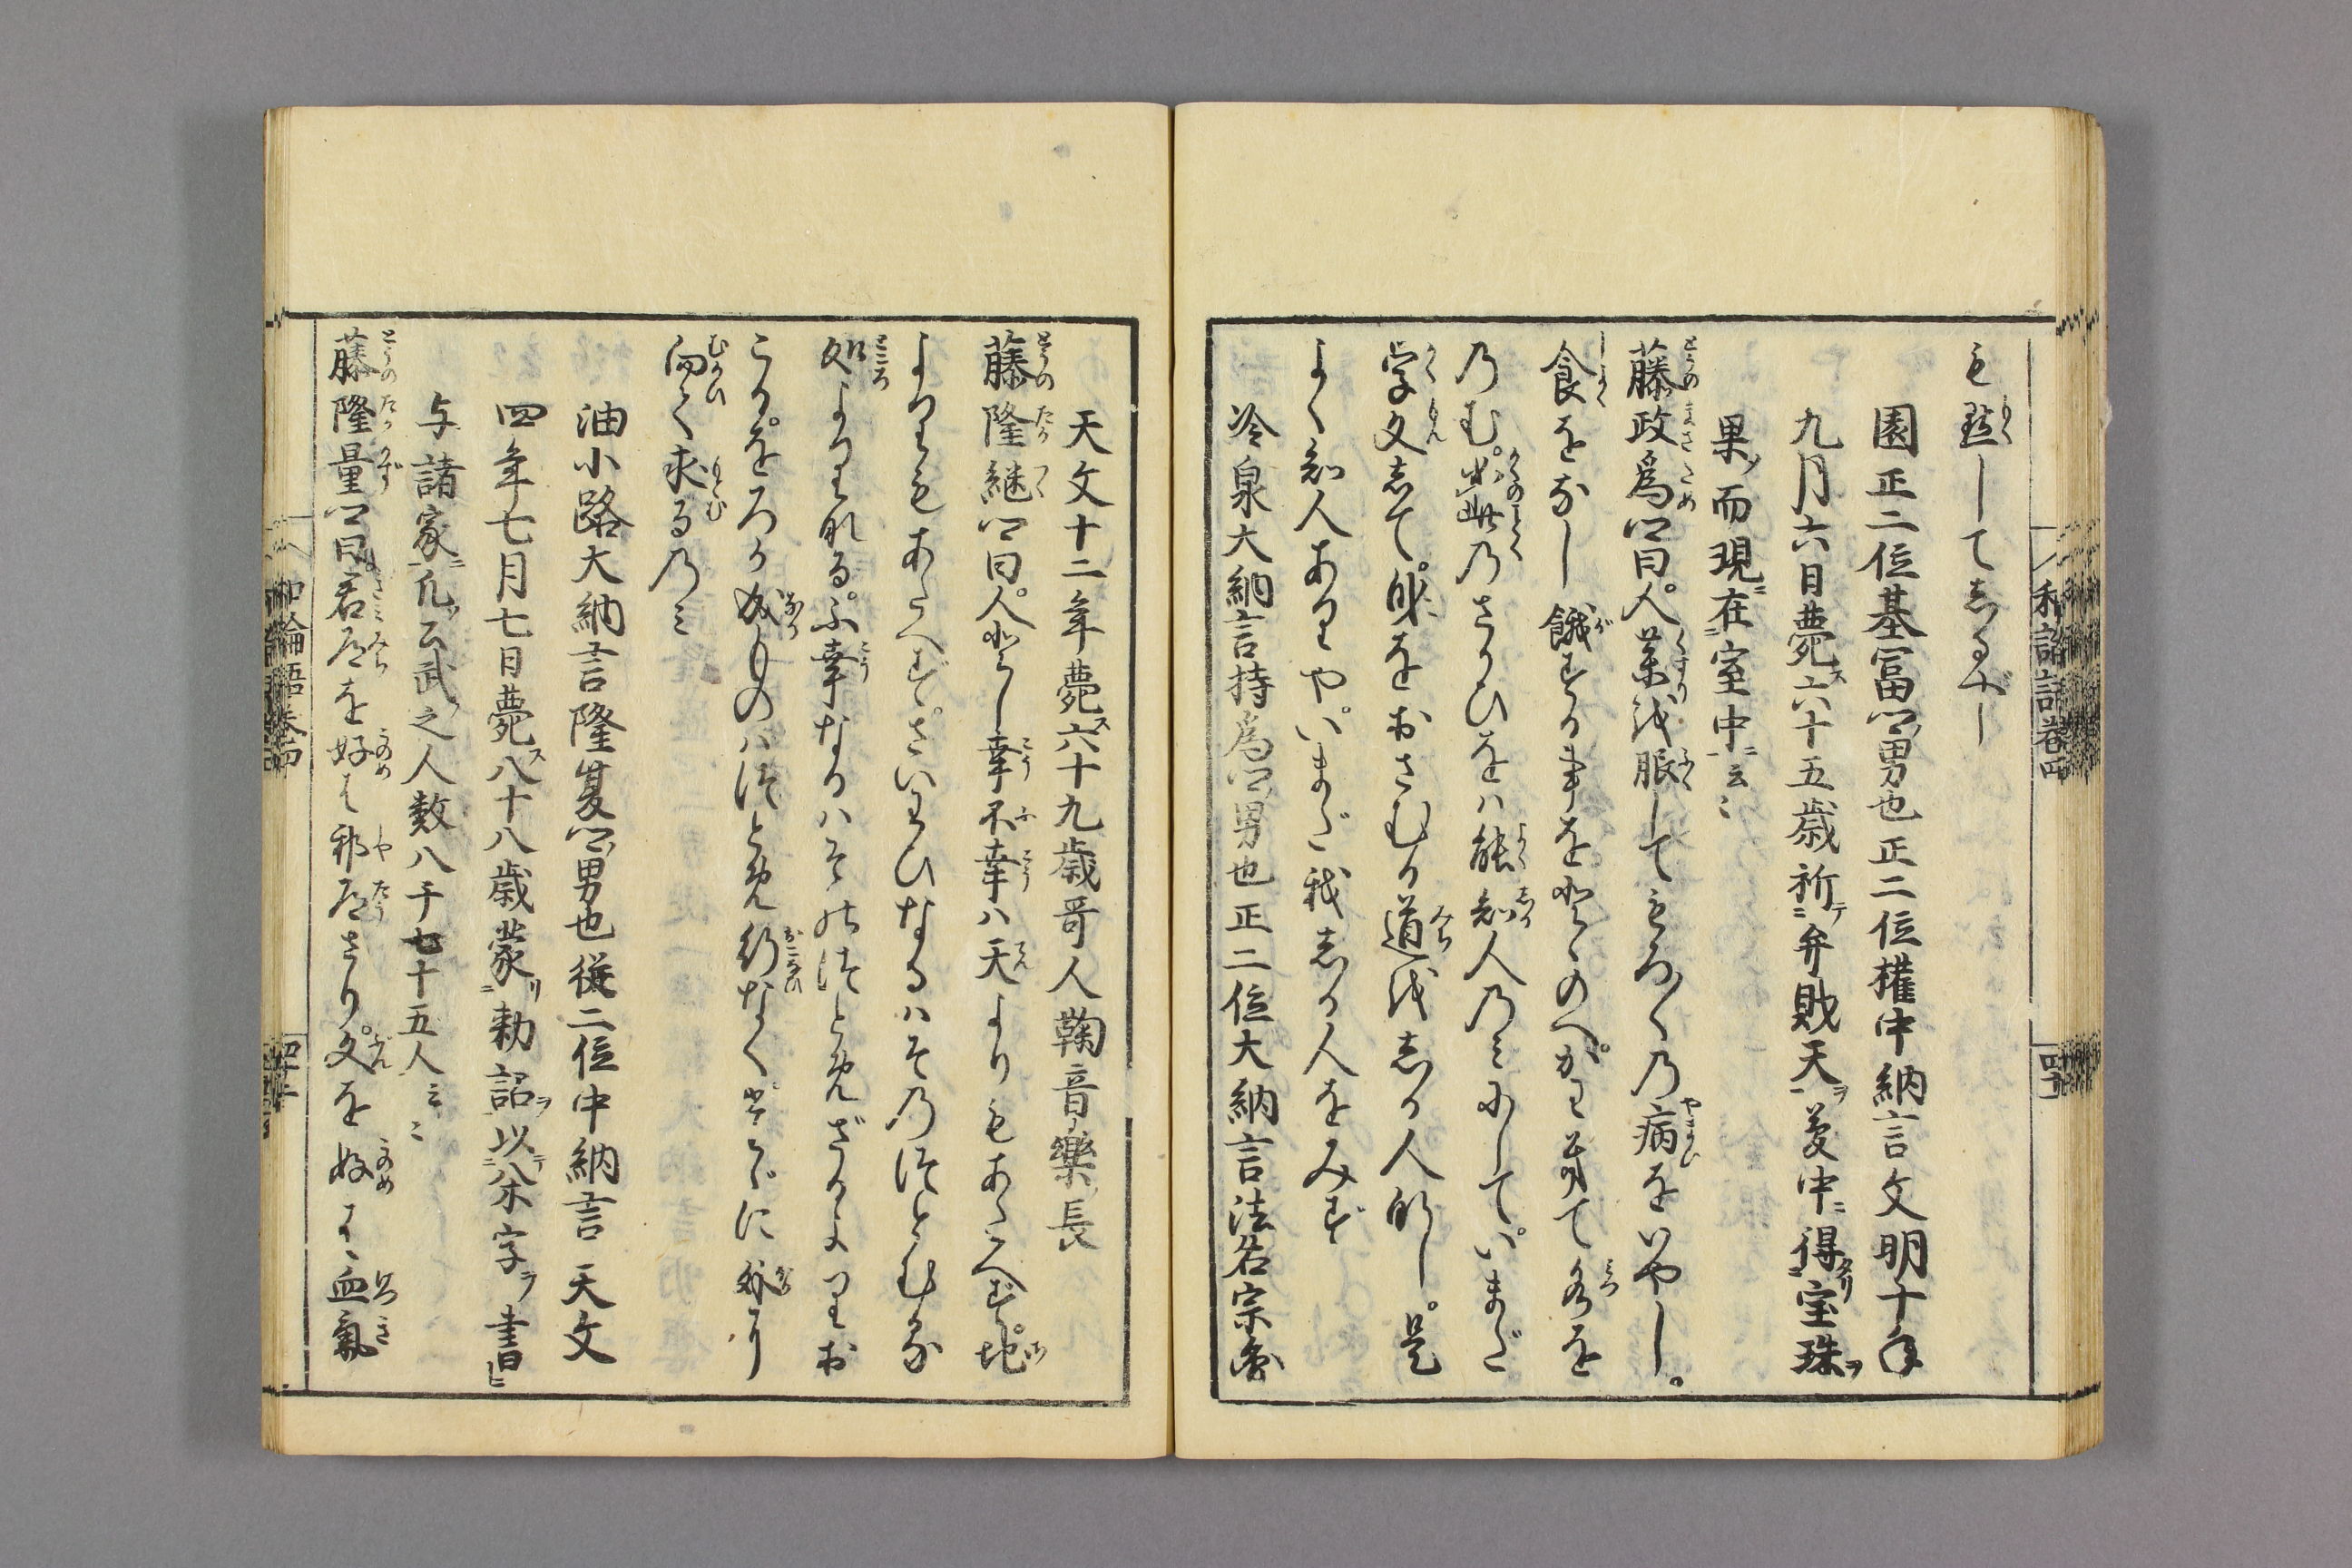 も黙してしるべし
園正二位基冨公男也正二位権中納言文明十年
九月六日薨ス六十五歳祈テ弁財天ヲ夢中ニ得タリ宝珠ヲ
果ノ而現ニ在室中ニ云〻
藤政為公曰。人薬を服してもろ〱の病をいやし。
食をなし餓する事をとゝのへ。かわきて水を
のむ。如此のさかひをは能知人のみにして。いまだ
学文して。身をおさむる道をしる人なし。是
よく知人ありや。いまだ我しる人をみず
冷泉大納言持為公男也正二位大納言法名宗
天文十二年薨ス六十九歳哥人鞠音樂長
藤隆継公曰。人とし幸不幸ハ天よりもあたへず。地
よりもあたへず。さいわひなるハそのつとむる
処よりきたる。ふ幸なるハそのつとめざるよりお
こる。をろか成ものハつとめ行なくしてに
向て求るのミ
油小路大納言隆夏公男也従二位中納言天文
四年七月七日薨ス八十八歳蒙リ勅詔ヲ以テ字ヲ書ヒ
与諸家ニ凡公武之人数八千七十五人云〻
藤隆量公曰。君道を好は邪道さり。文を好は血氣
和論語巻四
和論語巻四